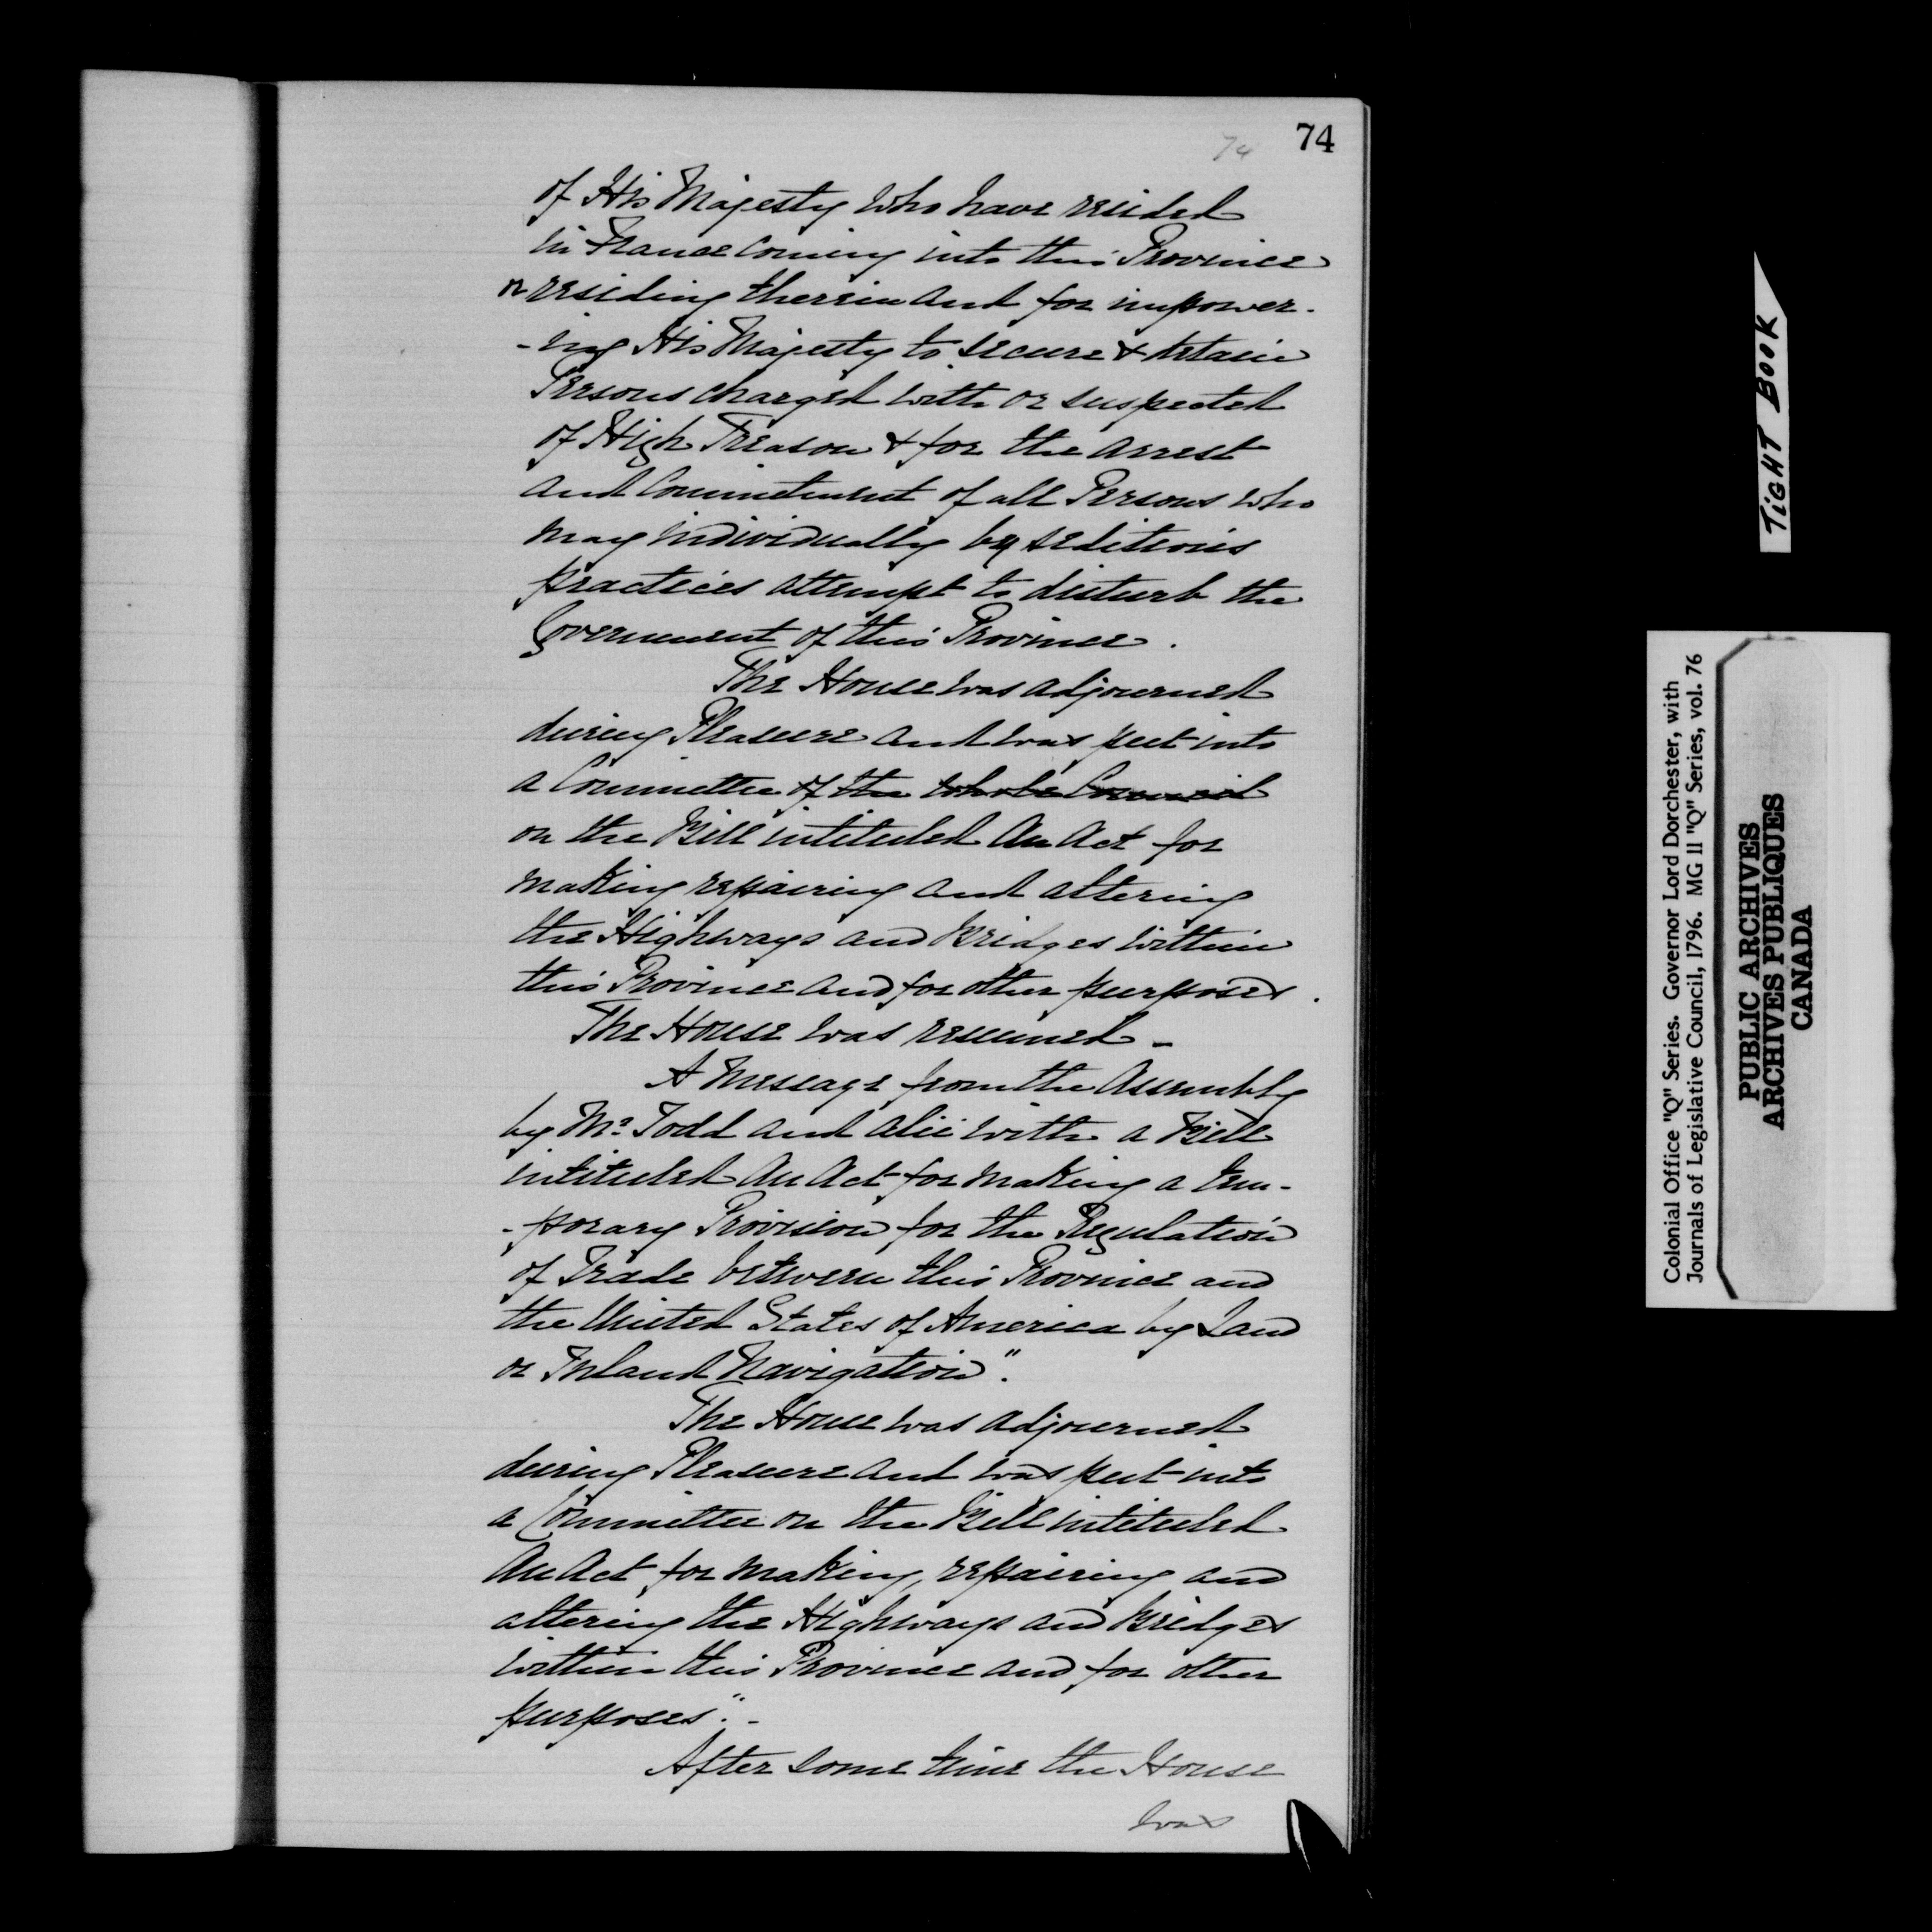 74
74
of His Majesty who have resided
in France coming into this Province
or residing therein and for impower-
-ing His Majesty to secure & detain
Persons charged with or suspected
of High Treason & for the arrest
and Commitment of all Persons who
may individually by seditious
practices attempt to disturb the
Government of this Province.
The House was adjourned
during Pleasure and was put into
a Committee of the whole Council
on the Bill intituled An Act for
making repairing and altering
the Highways and Bridges within
this Province and for other purposes.
The House was resumed -
A Message from the Assembly
by Mr Todd and alii with a Bill
intituled An Act for making a tem-
-porary Provision for the Regulation
of Trade between this Province and
the United States of America by Land
or Inland Navigation".
The House was adjourned
during Pleasure and was put into
a Committee on the Bill intituled
An Act for making, repairing and
altering the Highways and Bridges
within this Province and for other
purposes". -
After some time the House
was
TIGHT BOOK
Colonial Office "Q" Series. Governor Lord Dorchester, with
Journals of Legislative Council, 1796. MG 11 "Q" Series, vol. 76
PUBLIC ARCHIVES
ARCHIVES PUBLIQUES
CANADA